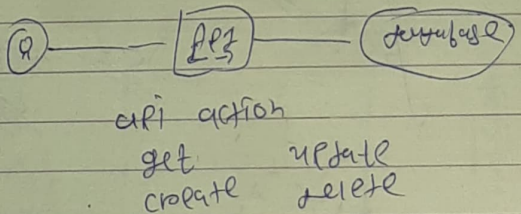 API database
api action
get update
create delete